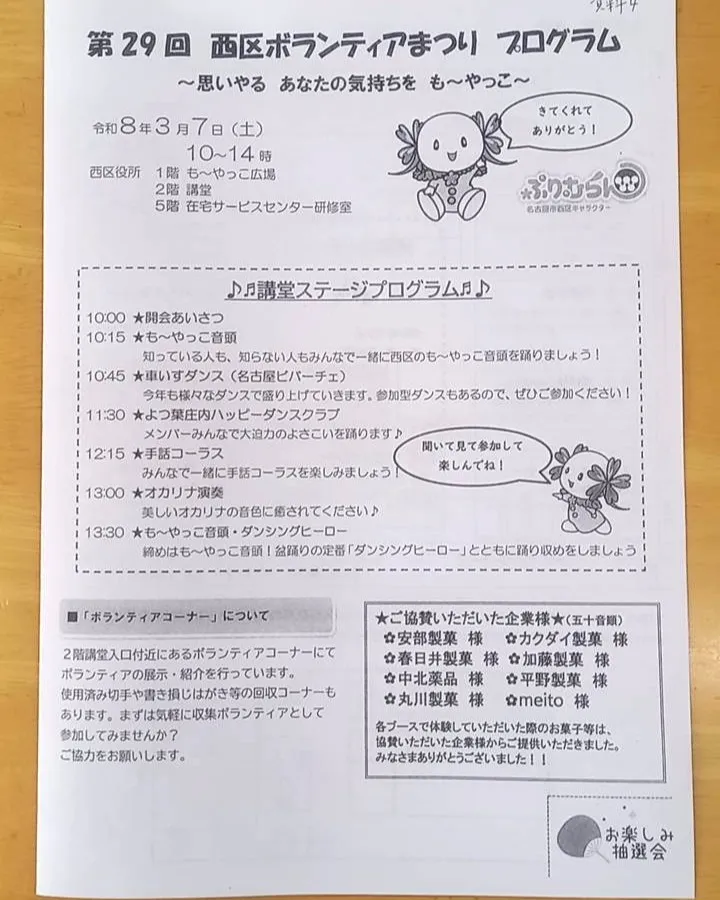 資料4
第29回 西区ボランティアまつり プログラム
～思いやる あなたの気持ちを も～やっこ～
令和8年3月7日（土）
10～14時
西区役所 1階 も～やっこ広場
2階 講堂
5階 在宅サービスセンター研修室
きてくれて
ありがとう！
ぷりむらん
名古屋市西区キャラクター
♪♬講堂ステージプログラム♬♪
10:00 ★開会あいさつ
10:15 ★も～やっこ音頭
知っている人も、知らない人もみんなで一緒に西区のも～やっこ音頭を踊りましょう！
10:45 ★車いすダンス（名古屋ビバーチェ）
今年も様々なダンスで盛り上げていきます。参加型ダンスもあるので、ぜひご参加ください！
11:30 ★よつ葉庄内ハッピーダンスクラブ
メンバーみんなで大迫力のよさこいを踊ります♪
12:15 ★手話コーラス
みんなで一緒に手話コーラスを楽しみましょう！
13:00 ★オカリナ演奏
美しいオカリナの音色に癒されてください♪
13:30 ★も～やっこ音頭・ダンシングヒーロー
締めはも～やっこ音頭！盆踊りの定番「ダンシングヒーロー」とともに踊り収めをしましょう
聞いて見て参加して
楽しんでね！
■「ボランティアコーナー」について
２階講堂入口付近にあるボランティアコーナーにて
ボランティアの展示・紹介を行っています。
使用済み切手や書き損じはがき等の回収コーナーも
あります。まずは気軽に収集ボランティアとして
参加してみませんか？
ご協力をお願いします。
★ご協賛いただいた企業様★（五十音順）
✿安部製菓 様 ✿カクダイ製菓 様
✿春日井製菓 様 ✿加藤製菓 様
✿中北薬品 様 ✿平野製菓 様
✿丸川製菓 様 ✿meito 様
各ブースで体験していただいた際のお菓子等は、
協賛いただいた企業様からご提供いただきました。
みなさまありがとうございました！！
お楽しみ
抽選会